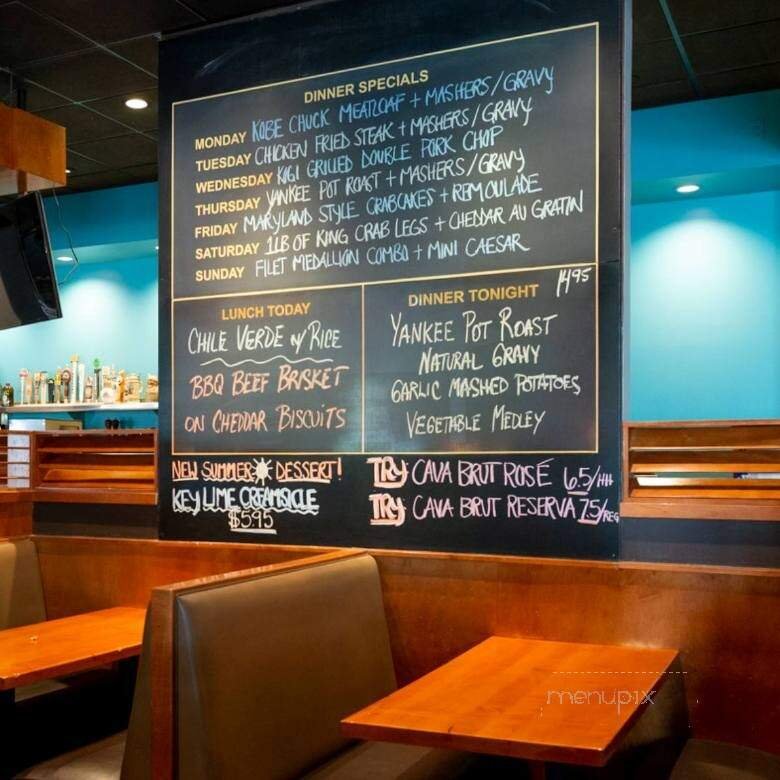 DINNER SPECIALS
MONDAY KOBE CHUCK MEATLOAF + MASHERS/GRAVY
TUESDAY CHICKEN FRIED STEAK + MASHERS/GRAVY
WEDNESDAY KOGI GRILLED DOUBLE PORK CHOP
THURSDAY YANKEE POT ROAST + MASHERS/GRAVY
FRIDAY MARYLAND STYLE CRABCAKES + REMOULADE
SATURDAY 1LB OF KING CRAB LEGS + CHEDDAR AU GRATIN
SUNDAY FILET MEDALLION COMBO + MINI CAESAR
LUNCH TODAY
CHILE VERDE w/ RICE
BBQ BEEF BRISKET
ON CHEDDAR BISCUITS
DINNER TONIGHT 1495
YANKEE POT ROAST
NATURAL GRAVY
GARLIC MASHED POTATOES
VEGETABLE MEDLEY
NEW SUMMER DESSERT!
KEY LIME CREAMSICLE
$5.95
TRY CAVA BRUT ROSÉ 6.5/HH
TRY CAVA BRUT RESERVA 7.5/REG
menupix